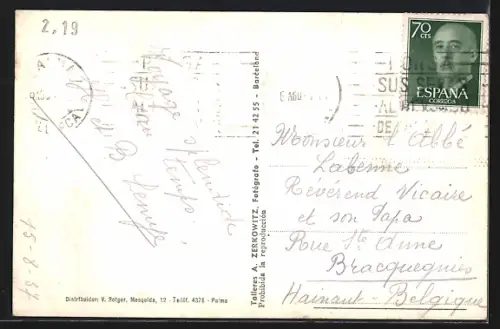 2.19
Voyage splendide
temps
et B
15-8-57
Talleres A. ZERKOWITZ, Fotógrafo - Tel. 21 42 55 - Barcelona
Prohibida la reproducción
Distribuidor: V. Rotger, Mesquida, 12 - Teléf. 4376 - Palma
70
CTS
ESPAÑA
CORREOS
SUS
AL
DE
Monsieur l'Abbé
Labenne
Révérend Vicaire
et son Papa
Rue Ste Anne
Bracquegnies
Hainaut - Belgique